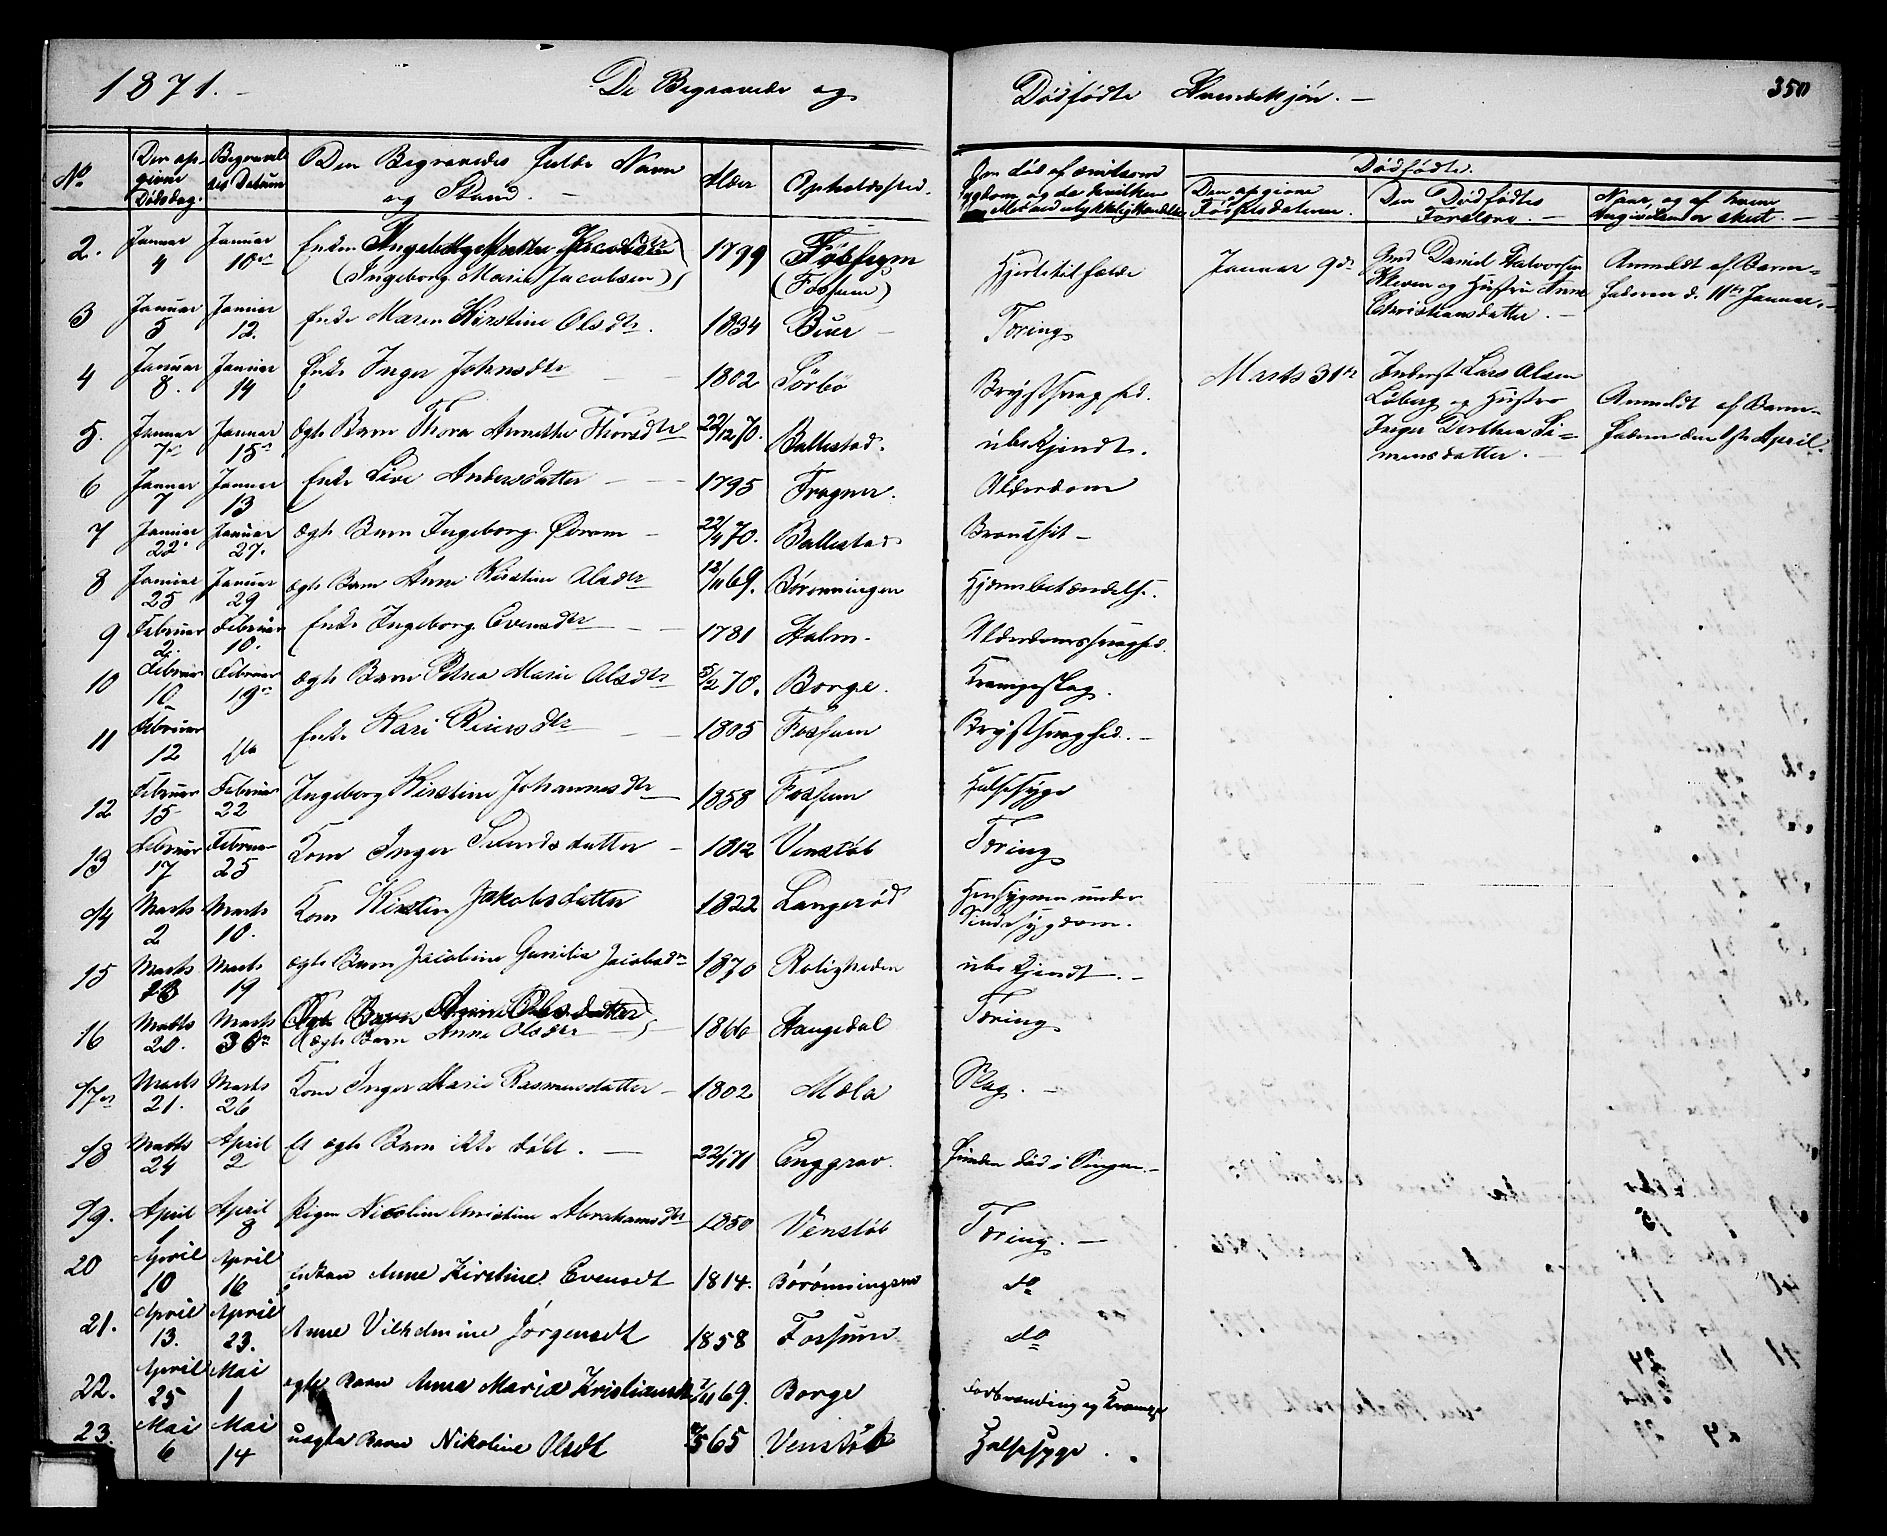 1871.- De Begravede og Dødfødte Kvindekjøn.- 350
No Den opgivne Dødsdag. Begravelses Datum Den Begravedes fulde Navn og Stand. Alder Opholdssted. Dødfødte.
Den opgivne Fødselsdatum. Den Dødfødtes Forældre.- Naar, og af hvem Angivelsen er skeet.-
2. Januar 4 Januar 10de Enken (Ingeborg Marie Jacobsen) 1799 (Fossum) Hjertetilfælde Januar 9de Daniel Halvorsen Kleven og Hustru Anne Christiansdatter.- Anmeldt af Barnefaderen d. 11te Januar.-
3 Januar 5 Januar 12. Enke Maren Kirstine Olsdtr. 1834 Buer Tæring
4 Januar 8. Januar 14 Enke Inger Johnsdtr 1802 Sörbö Brÿstsvaghed. Marts 31te Inderst Lars Olsen Lüberg og Hustru Inger Dorthea Simensdatter.- Anmeldt af Barnefaderen den 1ste April.
5. Januar 7de Januar 15de ægte Barn Thora Annethe Thorsdtr 22/12 70. Ballestad. übekjendt.
6 Januar 7 Januar 13 Enke Live Andersdatter 1795 Frogner. Alderdom
7 Januar 22. Januar 27. ægte Barn Ingeborg 22/4 70. Ballestad
8 Januar 25 Januar 29 ægte Barn Anne Kirstine Olsdtr 12/11 69. Börönningen Hjernebetændelse.
9 Februar 2. Februar 10. Enke Ingeborg Evensdtr 1781 Holm. Alderdomssvaghed.
10 Februar 10 Februar 19de ægte Barn Petrea Marie Olsdtr 5/2 70. Borge. Krampeslag.
11 Februar 12 do Enke Kari 1805 Fossum Brÿstsvaghed.-
12 Februar 15 Februar 22 Ingeborg Kirstine Johannesdtr 1858 Fossum Halssyge
13 Februar 17 Februar 25 Kone Inger Svendsdatter 1812 Venstöb Tæring
14 Marts 2 Marts 10. Kone Kirstin Jakobsdatter 1822 Langeröd
15 Marts Marts 19 ægte Barn Jacobine Gunilia Jacobsdtr 1870 Roligheden übekjendt.-
16 Marts 20. Marts 30te (ægte Barn Anne Olsdtr) 1866 Haugedal Tæring
17de Marts 21. Marts 26 Kone Inger Marie Rasmusdatter 1802 Mæla Slag.-
18 Marts 24 April 2 Et ægte Barn ikke döbt. 22/1 71 Enggrav. funden död i Sengen.-
19. April 1 April 8 Pigen Nicoline Christine Abrahamsdtr 1850 Venstöb Tæring.-
20 April 10 April 16 Enken Anne Kirstine Evensdt 1814. Börönningen do
21. April 13. April 23. Anne Vilhelmine Jørgensdt 1858 Fossum do
22. April 25 Mai 1 ægte Barn Anna Maria 69. Borge Forbrænding og Krampe
23. Mai 6 Mai 14 uægte Barn Nikoline Olsdt 65 Venstöb Halssyge.